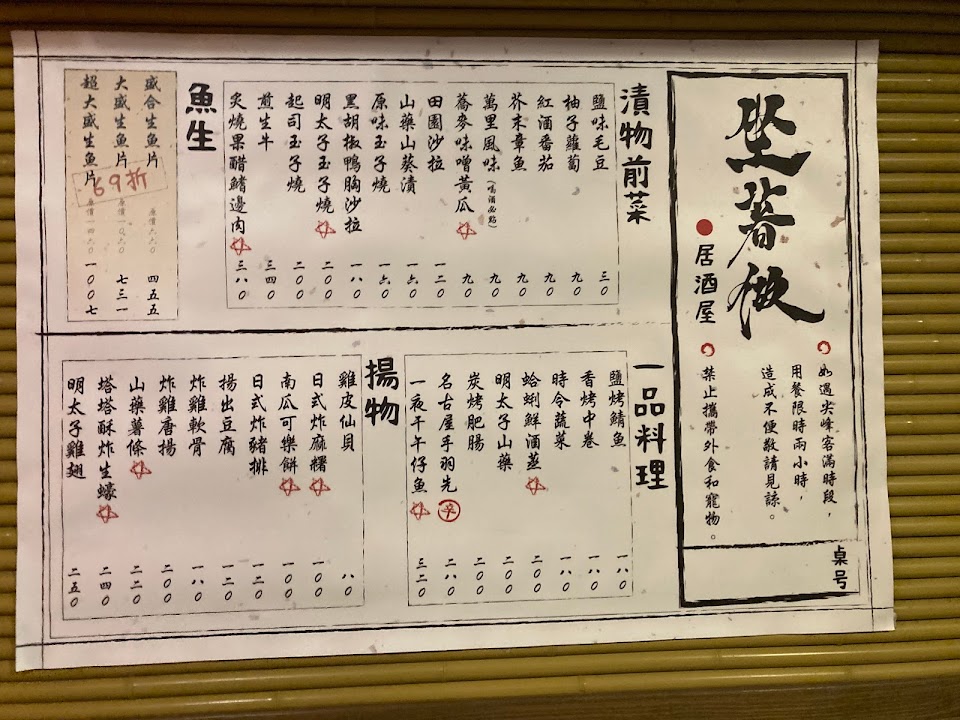 坐著做
居酒屋
如遇尖峰客滿時段，
用餐限時兩小時，
造成不便敬請見諒。
禁止攜帶外食和寵物。
桌号
漬物前菜
鹽味毛豆 三〇
柚子蘿蔔 九〇
紅酒番茄 九〇
芥末章魚 九〇
萬里風味(喝酒必點) 九〇
蕎麥味噌黃瓜 九〇
田園沙拉 一二〇
山藥山葵漬 一六〇
原味玉子燒 一六〇
黑胡椒鴨胸沙拉 一八〇
明太子玉子燒 二〇〇
起司玉子燒 二〇〇
煎生干 三四〇
炙燒果醋鰭邊肉 三八〇
魚生
盛合生魚片 原價六六〇 四五五
大盛生魚片 原價一〇六〇 七三一
超大盛生魚片 原價一四六〇 一〇〇七
69折
一品料理
鹽烤鯖魚 一八〇
香烤中卷 一八〇
時令蔬菜 一八〇
蛤蜊鮮酒蒸 二〇〇
明太子山藥 二〇〇
炭烤肥腸 二〇〇
名古屋手羽先 辛 二八〇
一夜干午仔魚 三二〇
揚物
雞皮仙貝 八〇
日式炸麻糬 一〇〇
南瓜可樂餅 一〇〇
日式炸豬排 一二〇
揚出豆腐 一二〇
炸雞軟骨 一八〇
炸雞唐揚 二〇〇
山藥薯條 二二〇
塔塔酥炸生蠔 二四〇
明太子雞翅 二五〇